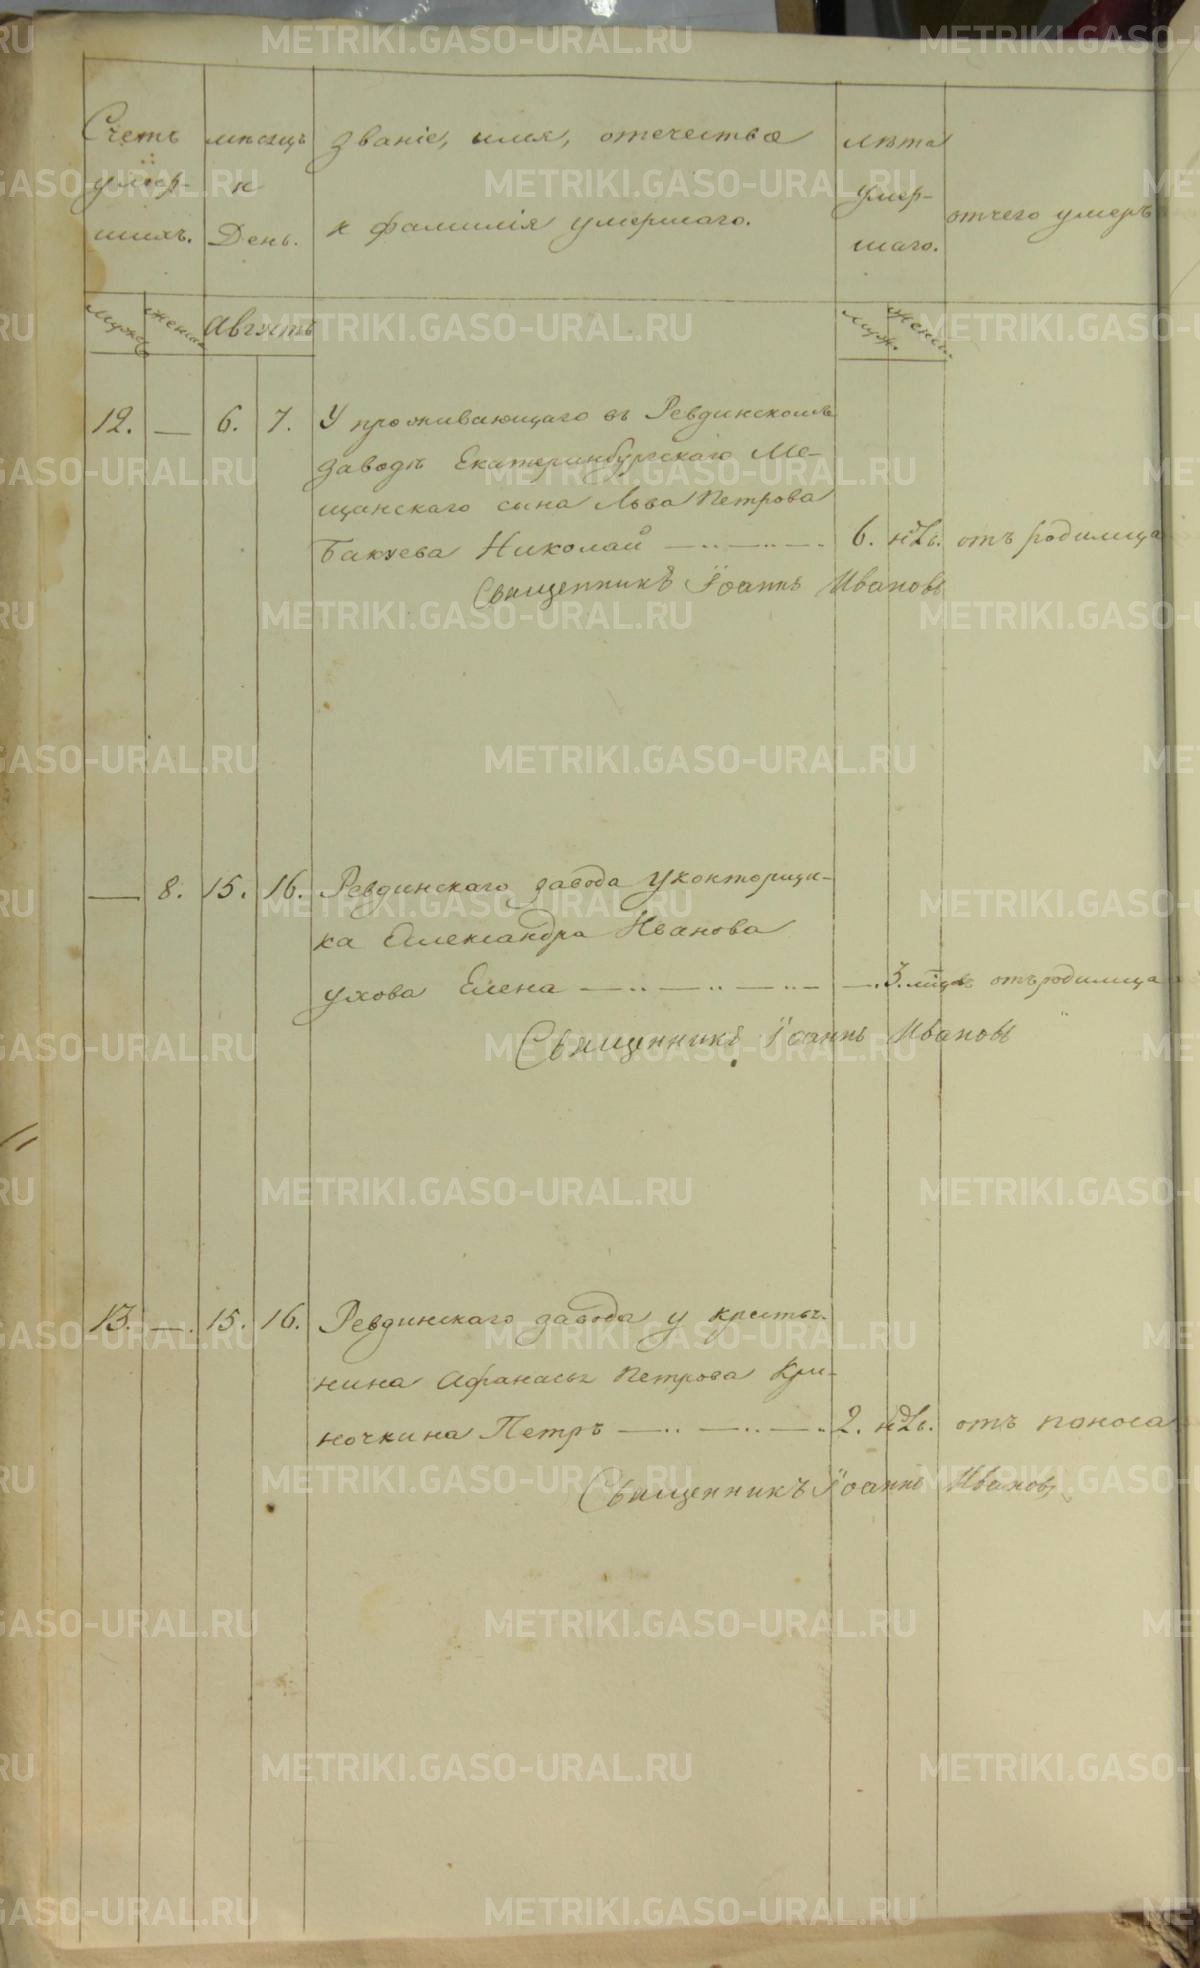 Счетъ умер- шихъ.
мѣсяцъ и День.
Званіе, имя, отечество
и фамилія умершаго.
лѣта умер- шаго.
отчего умеръ
Августъ
12. — 6. 7. У проживающаго въ Ревдинскомъ
заводѣ Екатеринбургскаго Ме-
щанскаго сына Льва Петрова
Бакуева Николай 6. нед. отъ родимца
Священникъ Іоаннъ Ивановъ
— 8. 15. 16. Ревдинскаго завода у конторщи-
ка Александра Иванова
Ухова Елена — 3. мѣс. отъ родимца
Священникъ Іоаннъ Ивановъ
13. — 15. 16. Ревдинскаго завода у крестья-
нина Афанасья Петрова Кри-
ночкина Петръ 2. нед. отъ поноса
Священникъ Іоаннъ Ивановъ
METRIKI.GASO-URAL.RU